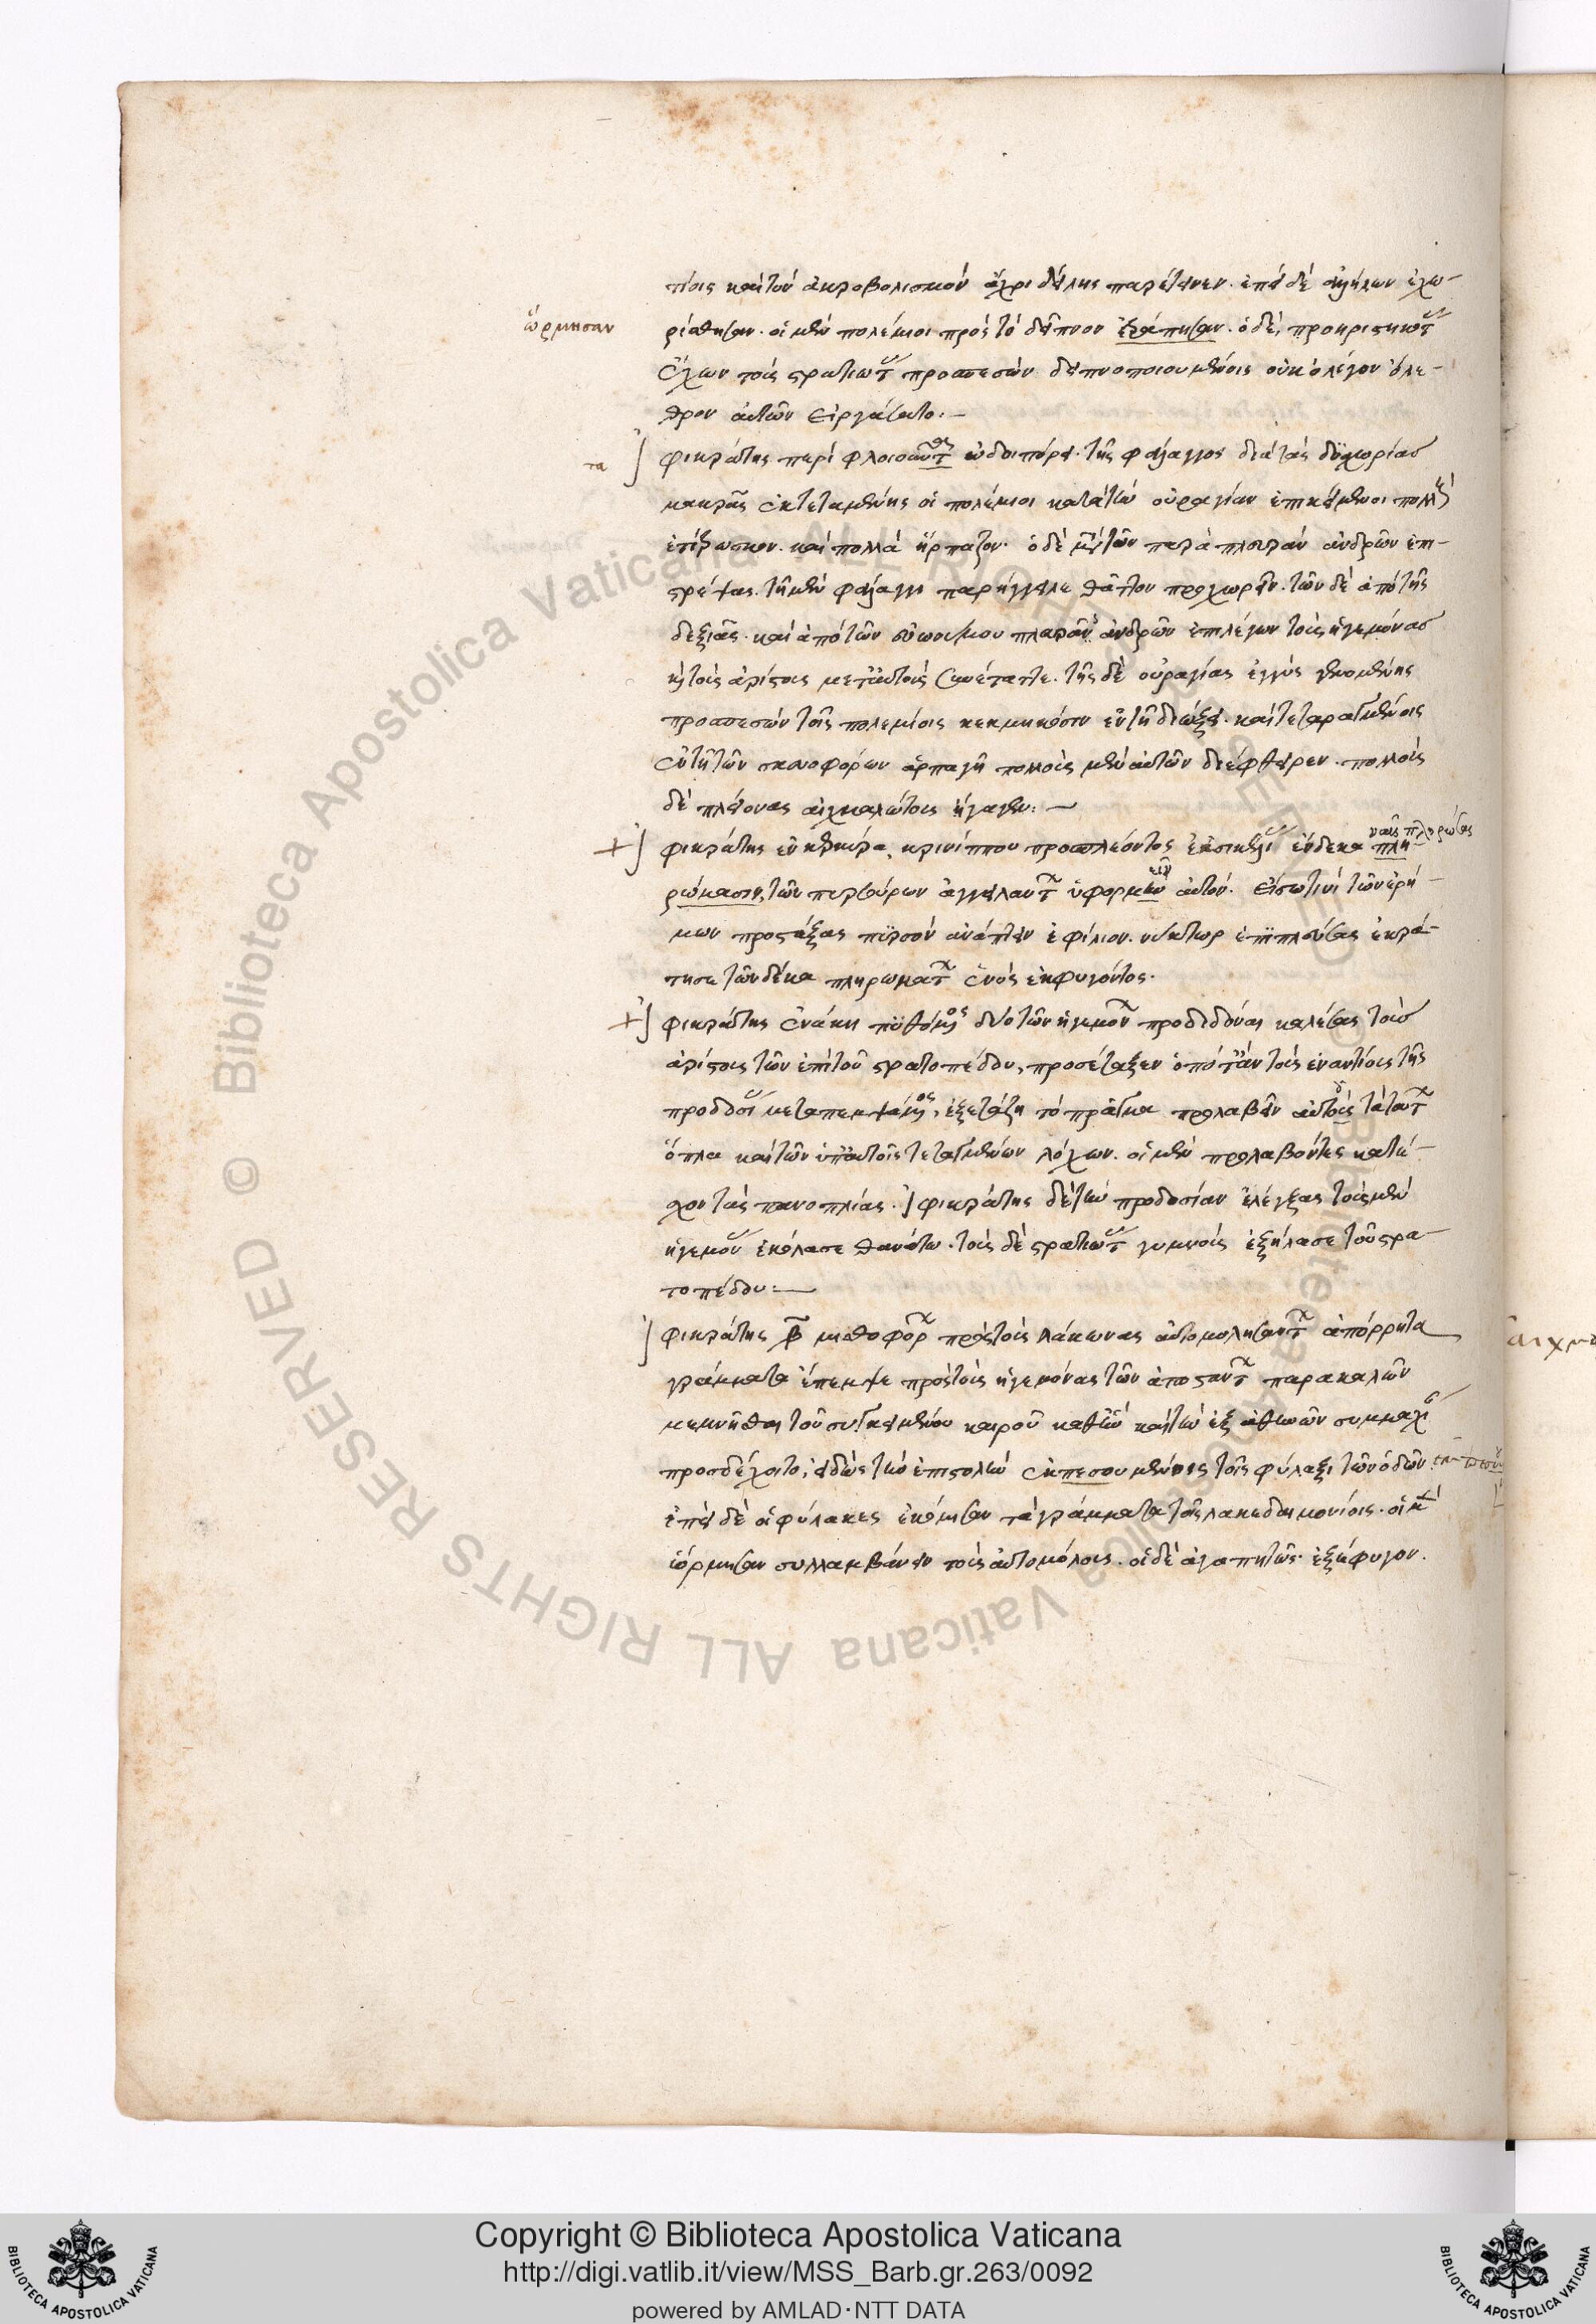 τίοις καὶ τὸν ἀκροβολισμὸν ἄχρι δείλης παρέτεινεν. ἐπεὶ δὲ ἀλλήλων ἐχω-
ὥρμησαν
ρίσθησαν. οἱ μὲν πολέμιοι πρὸς τὸ δεῖπνον ἐτράπησαν. ὁ δὲ,
ἔχων τοὺς στρατιώτ προσπεσὼν δειπνοποιουμένοις οὐκ ὀλίγον ὄλε-
θρον αὐτῶν εἰργάσατο:—
τα
φικράτης περὶ ὡδοιπόρει. τῆς φάλαγγος διὰ τὰς δυσχωρίας
μακρᾶς ἐκτεταμένης οἱ πολέμιοι κατὰ τὴν οὐραγίαν ἐπικείμενοι πολλ
ἐτίτρωσκον. καὶ πολλὰ ἥρπαζον. ὁ δὲ τῶν παρὰ πλευρὰν ἀνδρῶν ἐπι-
στρέψας. τῇ μὲν φάλαγγι παρήγγειλε θᾶττον προχωρεῖν. τῶν δὲ ἀπὸ τῆς
δεξιᾶς. καὶ ἀπὸ τῶν εὐωνύμου πλευρῶν ἀνδρῶν ἐπιλέγων τοὺς ἡγεμόνας
κỳ τοὺς ἀρίστους μετ' αὐτοὺς συνέταττε. τῆς δὲ οὐραγίας ἐγγὺς γενομένης
προσπεσὼν τοῖς πολεμίοις κεκμηκόσιν ἐν τῇ διώξει. καὶ τεταραγμένοις
ἐν τῇ τῶν σκευοφόρων ἁρπαγῇ πολλοὺς μὲν αὐτῶν διέφθειρεν. πολλοὺς
δὲ πλείονας αἰχμαλώτους ἤγαγεν:—
φικράτης ἐν κερκύρα, κρινίππου προσπλέοντος ἐκ σικελί ἕνδεκα πλη
ναῦς πληρώσας
ρώμασιν, τῶν πυρφύρων ἀγγειλαντ ὑφορμεῖν αὐτόν. εἴσω τινὶ τῶν ἐρή-
μων προστάξας πυρσὸν ἀνάπτειν ἐφίλιον. νύκτωρ ἐπιπλεύσας ἐκρά-
τησε τῶν δέκα πληρωματ ἑνὸς ἐκφυγόντος.
φικράτης ἐν ἄκη πυθόμενος δύο τῶν ἡγεμόν προδιδόναι καλέσας τοὺς
ἀρίστους τῶν ἐπὶ τοῦ στρατοπέδου, προσέταξεν ὁπόταν τοὺς ἐναντίους τῆς
προδοσί μεταπεμψάμενος, ἐξετάζῃ τὸ πρᾶγμα προλαβεῖν αὐτοὺς τὰ τουτ
ὅπλα καὶ τῶν ὑπ' αὐτοῖς τεταγμένων λόχων. οἱ μὲν προλαβόντες κατεῖ-
χον τὰς πανοπλίας. ἰφικράτης δὲ τὴν προδοσίαν ἐλέγξας τοὺς μὲν
ἡγεμόν ἐκόλασε θανάτω. τοὺς δὲ στρατιώτ γυμνοὺς ἐξήλασε τοῦ στρα-
τοπέδου:—
φικράτης β μισθοφόρ πρὸς τοὺς λάκωνας αὐτομολησαντ ἀπόρρητα
γράμματα ἔπεμψε πρὸς τοὺς ἡγεμόνας τῶν ἀποσταντ παρακαλῶν
μεμνῆσθαι τοῦ συγκειμένου καιροῦ καθ' ὃν καὶ τὴν ἐξ ἀθηνῶν συμμαχί
προσδέχοιτο, εἰδὼς τὴν ἐπιστολὴν ἐκπεσουμένοις τοῖς φύλαξι τῶν ὁδῶν.
ἐπεὶ δὲ οἱ φύλακες ἐκόμισαν τὰ γράμματα τοῖς λακεδαιμονίοις. οἱ μὲν
ὥρμησαν συλλαμβάνειν τοὺς αὐτομόλους. οἱ δὲ ἀγαπητῶς ἐξέφυγον.
Copyright © Biblioteca Apostolica Vaticana
http://digi.vatlib.it/view/MSS_Barb.gr.263/0092
powered by AMLAD·NTT DATA
Biblioteca Apostolica Vaticana ALL RIGHTS RESERVED © Biblioteca Apostolica Vaticana ALL RIGHTS RESERVED ©
BIBLIOTECA APOSTOLICA VATICANA
BIBLIOTECA APOSTOLICA VATICANA